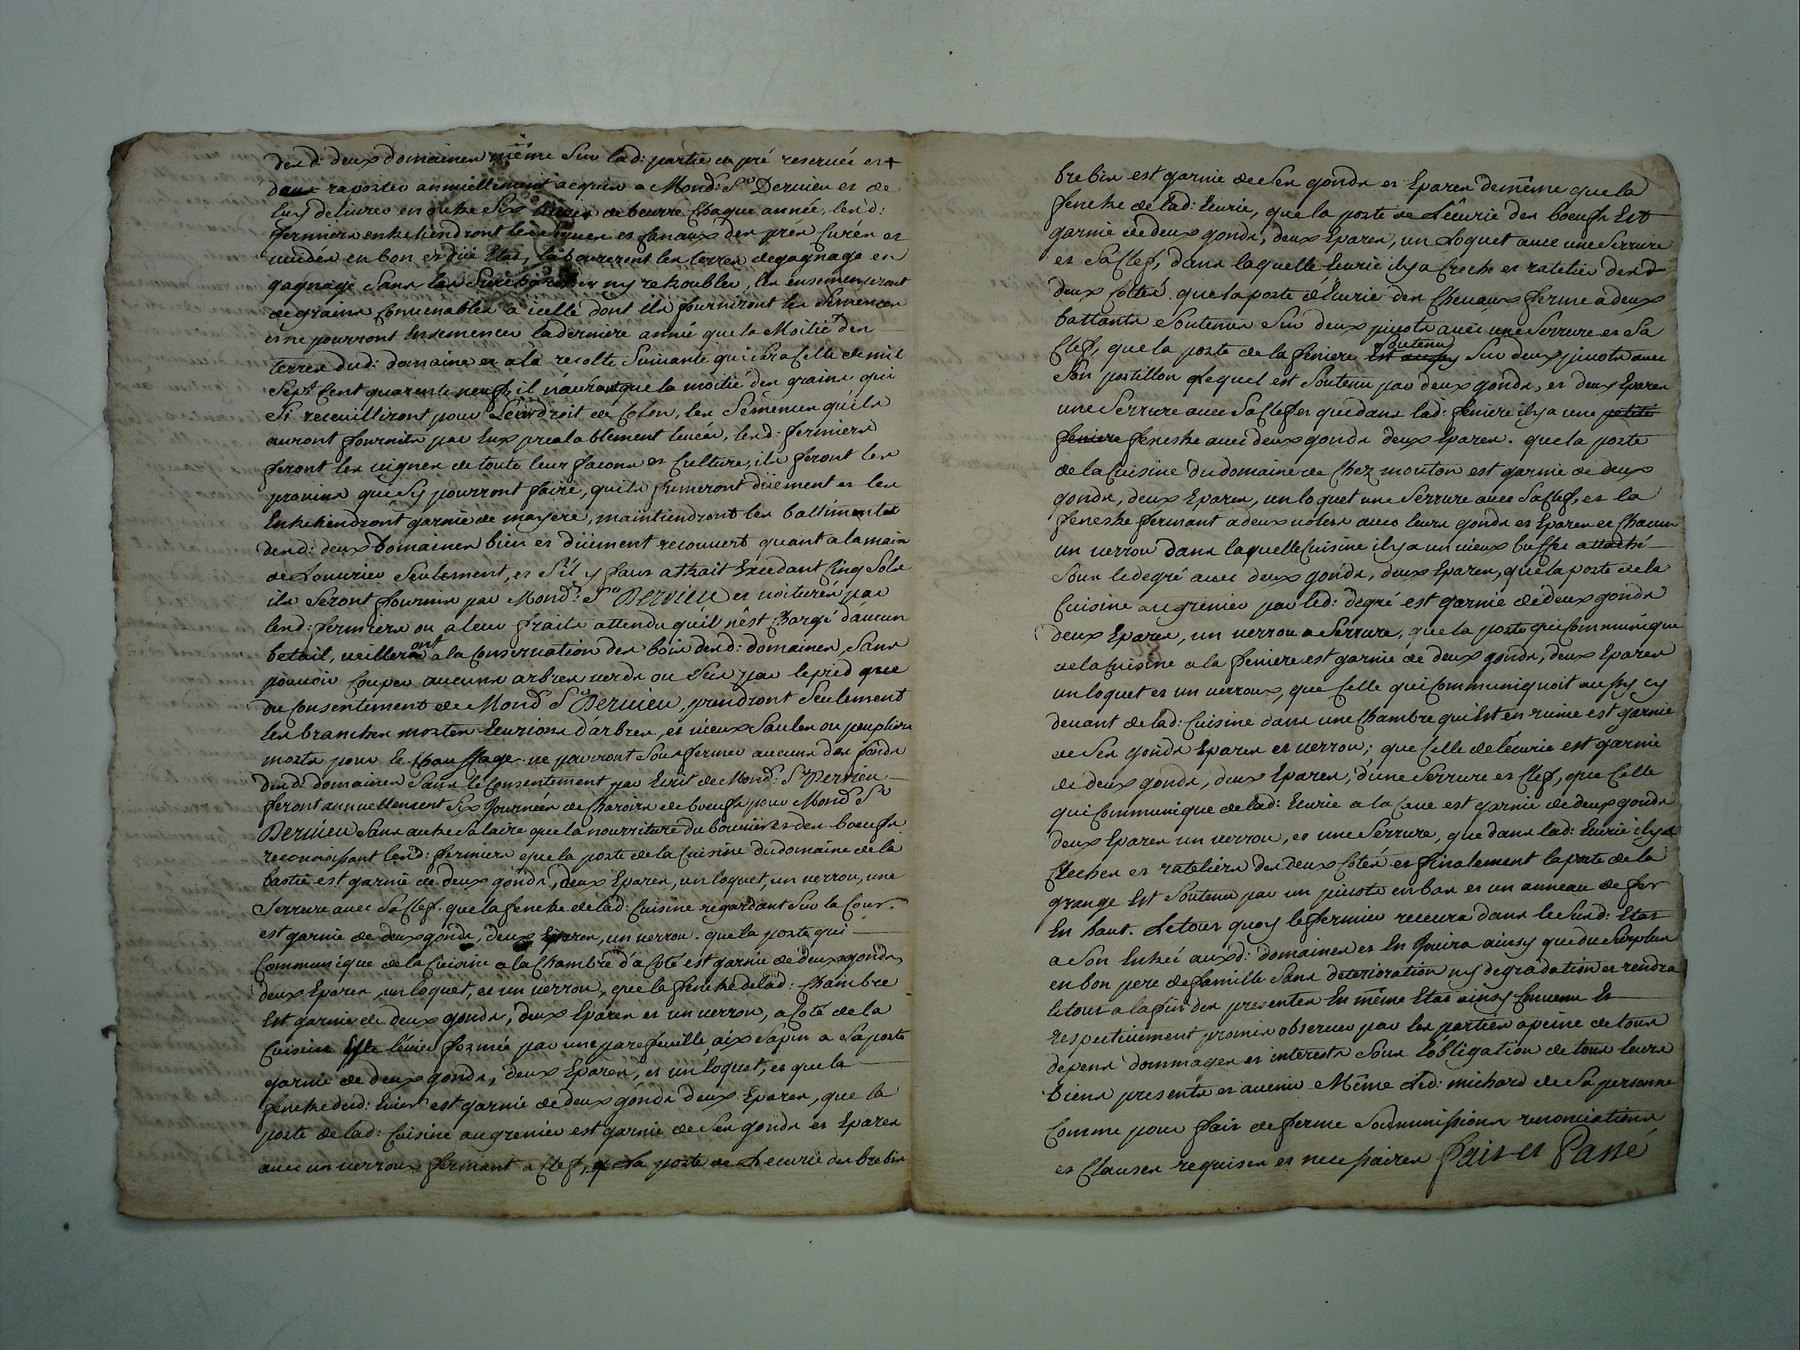 desd: deux domaines même Sur lad: partie de pré reservée et +
dans raporter annuellement acquis a Mond: Sr Dervieu et de
luy delivrer en outre Six livres de beurre Chaque année, lesd:
fermiers entretiendront les et fanaux des prés Curés et
vuidés en bon et dûe Etat, laboureront les terres de gagnage en
gagnage Sans les ny retroubler, les ensemenceront
de grains Convenables a icelle dont ils fourniront les Semences
et ne pourront Ensemencer la derniere année que la Moitié des
terres dud: domaine et a la recolte Suivante qui Sera Celle de mil
Sept Cent quarente neuf, il n'auront que la moitié des grains qui
Si receuilliront pour Leur droit de Colon, les Semences qu'ils
auront fournits par Eux prealablement levées, lesd: fermiers
feront les vignes de toute leur facons et Culture, ils feront les
provins qui Sy pourront faire, qu'ils fumeront düement et les
Entretiendront garnie de maniere, maintiendront les battiments
desd: deux Domaines bien et düement recouvert quant a la main
de Louvrier Seulement, et S'il y faut attrait Excedant Cinq Sols
ils Seront fournis par Mond: Sr Dervieu et voiturés par
lesd: fermiers ou a leur fraits attendu qu'il n'est Chargé d'aucun
betail, veilleront a la Conservation des bois desd: domaines, Sans
pouvoir Couper aucuns arbres verds ou Secs par le pied que
du Consentement de Mond: Sr Dervieu, prendront Seulement
les branches mortes d'arbres, et vieux Saules ou peupliers
morts pour le Chauffage ne pourront Sousfermer aucuns des fonds
desd: domaines Sans le Consentement par Ecrit de Mond: Sr Dervieu
feront annuellement Six Journées de Charois de boeufs pour Mond: Sr
Dervieu Sans autre Salaire que la nourriture du bouvier et des boeufs
reconoissant lesd: fermiers que la porte de la Cuisine du domaine de la
bastie est garnie de deux gonds, deux Epares, un loquet, un verrou, une
Serrure avec Sa Clef. que la fenetre de lad: Cuisine regardant Sur la Cour
est garnie de deux gonds, deux Epares, un verrou. que la porte qui
Communique de la Cuisine a la Chambre d'a Coté est garnie de deux gonds,
deux Epares, un loquet, et un verrou, que la fenetre de lad: Chambre
Est garnie de deux gonds, deux Epares et un verrou, a Coté de la
Cuisine Est le lévier formée par une parefeuille aix Sapin a Sa porte
garnie de deux gonds, deux Epares, et un loquet, et que la
fenetre dud: Evier est garnie de deux gonds deux Epares, que la
porte de lad: Cuisine au grenier est garnie de Ses gonds et Epares
avec un verroux fermant a Clef, que la porte de Lecurie des brebis
brebis est garnie de Ses gonds et Epares de même que la
fenetre de lad: Ecurie, que la porte de L'écurie des boeufs Est
garnie de deux gonds, deux Epares, un Loquet avec une Serrure
et Sa Clef, dans laquelle Ecurie il y a Creche et ratelier desd:
deux Cottés. que la porte d'Ecurie des Chevaux ferme a deux
battants Soutenus Sur deux pivots avec une Serrure et Sa
Clef, que la porte de la feniere est aussy soutenu Sur deux pivots avec
Son portillon Lequel est Soutenu par deux gonds, et deux Epares
une Serrure avec Sa Clef et que dans lad: feniere il y a une petite
feniere fenetre avec deux gonds deux Epares. que la porte
de la Cuisine du domaine de Chez mouton est garnie de deux
gonds, deux Epares, un loquet une Serrure avec Sa Clef, et la
fenestre fermant a deux volets avec leurs gonds et Epares et Chacun
un verrou dans laquelle Cuisine il y a un vieux buffet attaché
Sous le degré avec deux gonds, deux Epares, que la porte de la
Cuisine au grenier par led: degré est garnie de deux gonds
deux Epares, un verrou a Serrure, que la porte qui Communique
de la Cuisine a la feniere est garnie de deux gonds, deux Epares
un loquet et un verroux, que Celle qui Communiquoit aussy cy
devant de lad: Cuisine dans une Chambre qui Est en ruine est garnie
de Ses gonds Epares et verrou; que Celle de lécurie est garnie
de deux gonds, deux Epares, d'une Serrure et Clef, que Celle
qui Communique de lad: Ecurie a la Cave est garnie de deux gonds
deux Epares un verrou, et une Serrure, que dans lad: Ecurie il y a
Creches et rateliers des deux Cotés et finalement la porte de la
grange Est Soutenue par un pivote en bas et un anneau de fer
En haut. Le tout quoy le fermier recevra dans le Susd: Etat
a Son Entrée auxd: domaines et En Jouira ainsy que du Surplus
en bon pere de famille Sans deterioration ny degradation et rendra
le tout a la fin des presentes En même Etat ainsy Convenu Et
respectivement promis observer par les parties a peine de tous
depens dommages et interests Sous l'obligation de tous leurs
biens presents et avenir Même Led: michard de Sa personne
Comme pour fait de ferme Soummissions renonciations
et Clauses requises et necessaires fait et Passé